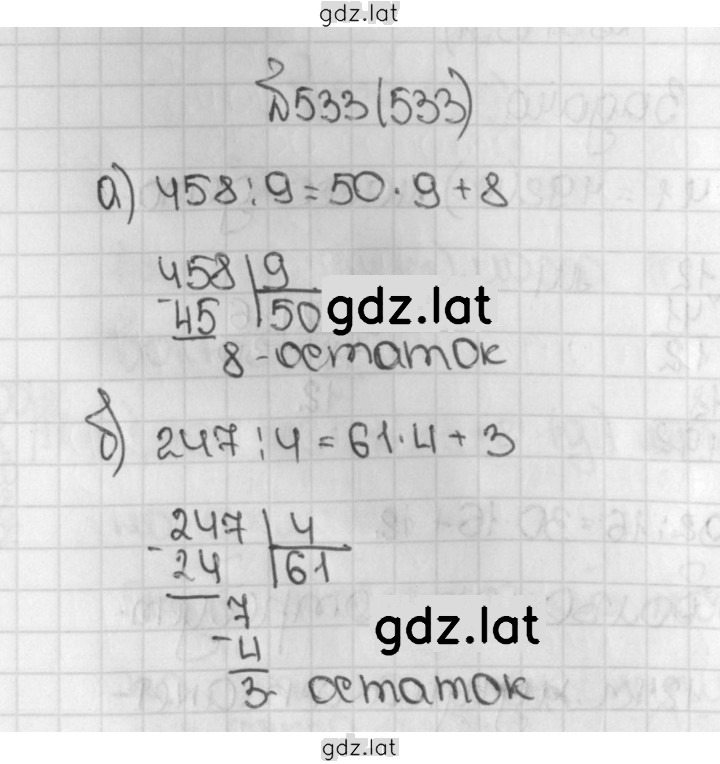 gdz.lat
№533(533)
а) 458:9=50·9+8
458 | 9
-45 | 50
gdz.lat
8-остаток
б) 247:4=61·4+3
247 | 4
-24 | 61
7
-4
gdz.lat
3- остаток
gdz.lat